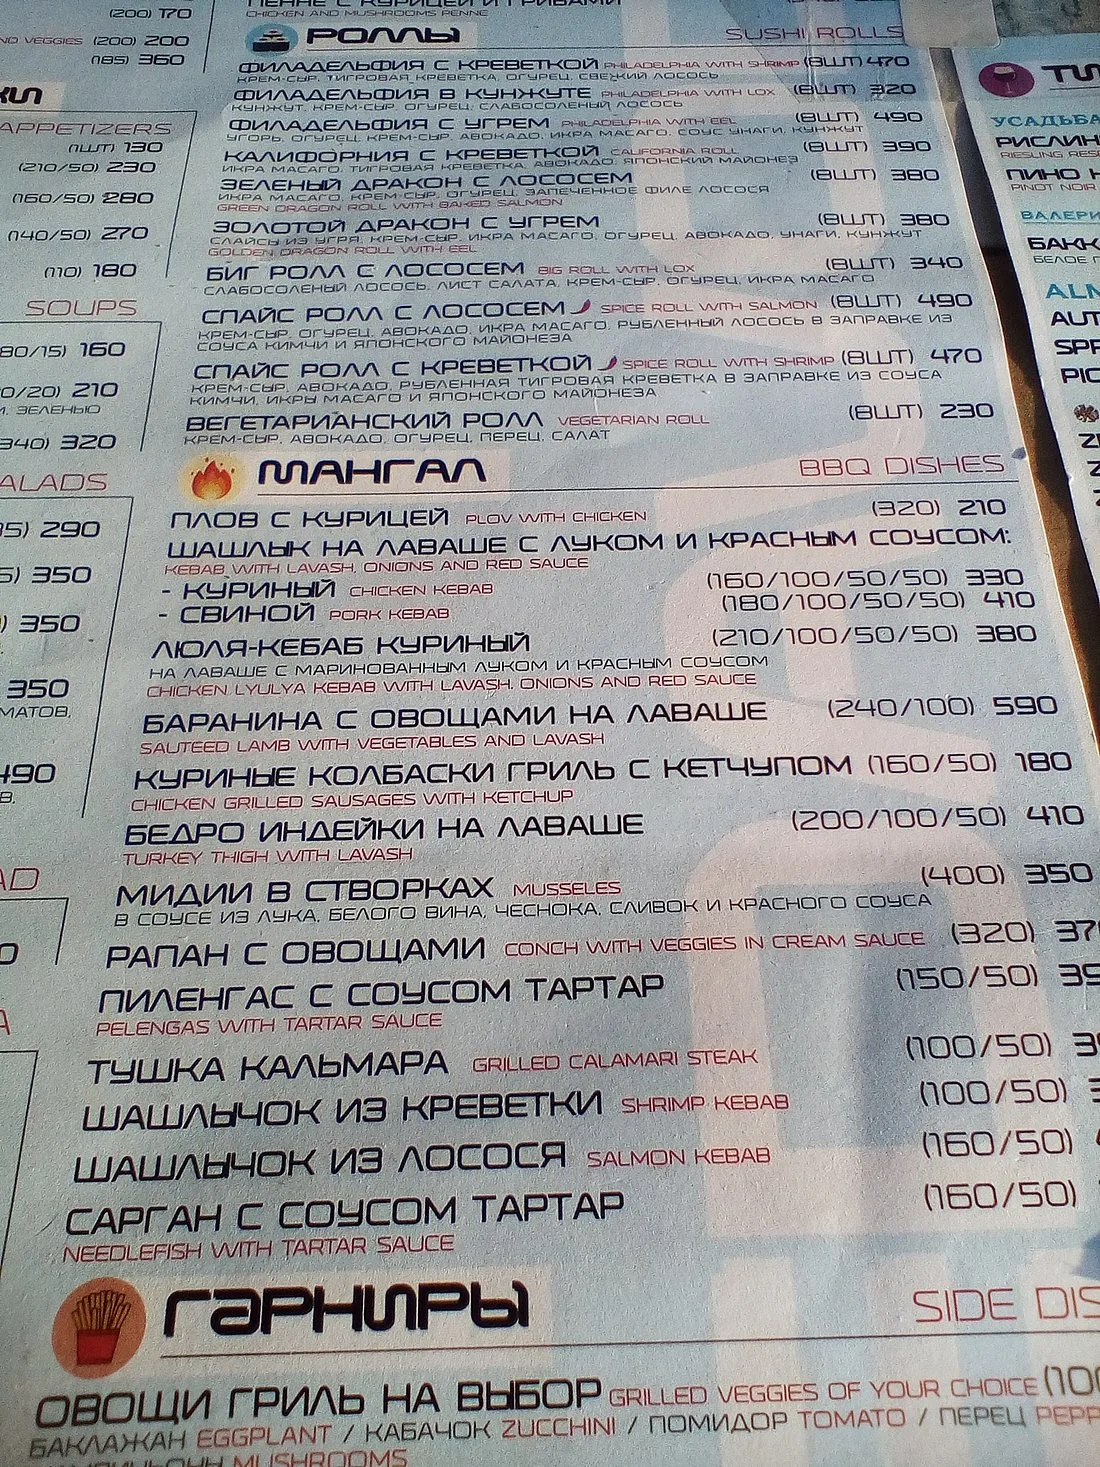 (200) 170
ND VEGGIES (200) 200
(185) 360
APPETIZERS
(1ШТ) 130
(210/50) 230
(160/50) 280
(140/50) 270
(110) 180
SOUPS
80/15) 160
0/20) 210
ЗЕЛЕНЬЮ
340) 320
ALADS
290
350
350
350
МАТОВ,
490
ПЕННЕ С КУРИЦЕЙ И ГРИБАМИ
CHICKEN AND MUSHROOMS PENNE
РОЛЛЫ SUSHI ROLLS
ФИЛАДЕЛЬФИЯ С КРЕВЕТКОЙ PHILADELPHIA WITH SHRIMP (8ШТ) 470
КРЕМ-СЫР, ТИГРОВАЯ КРЕВЕТКА, ОГУРЕЦ, СВЕЖИЙ ЛОСОСЬ
ФИЛАДЕЛЬФИЯ В КУНЖУТЕ PHILADELPHIA WITH LOX (8ШТ) 320
КУНЖУТ, КРЕМ-СЫР, ОГУРЕЦ, СЛАБОСОЛЕНЫЙ ЛОСОСЬ
ФИЛАДЕЛЬФИЯ С УГРЕМ PHILADELPHIA WITH EEL (8ШТ) 490
УГОРЬ, ОГУРЕЦ, КРЕМ-СЫР, АВОКАДО, ИКРА МАСАГО, СОУС УНАГИ, КУНЖУТ
КАЛИФОРНИЯ С КРЕВЕТКОЙ CALIFORNIA ROLL (8ШТ) 390
ИКРА МАСАГО, ТИГРОВАЯ КРЕВЕТКА, АВОКАДО, ЯПОНСКИЙ МАЙОНЕЗ
ЗЕЛЕНЫЙ ДРАКОН С ЛОСОСЕМ (8ШТ) 380
ИКРА МАСАГО, КРЕМ-СЫР, ОГУРЕЦ, ЗАПЕЧЕННОЕ ФИЛЕ ЛОСОСЯ
GREEN DRAGON ROLL WITH BAKED SALMON
ЗОЛОТОЙ ДРАКОН С УГРЕМ (8ШТ) 380
СЛАЙСЫ ИЗ УГРЯ, КРЕМ-СЫР, ИКРА МАСАГО, ОГУРЕЦ, АВОКАДО, УНАГИ, КУНЖУТ
GOLDEN DRAGON ROLL WITH EEL
БИГ РОЛЛ С ЛОСОСЕМ BIG ROLL WITH LOX (8ШТ) 340
СЛАБОСОЛЕНЫЙ ЛОСОСЬ, ЛИСТ САЛАТА, КРЕМ-СЫР, ОГУРЕЦ, ИКРА МАСАГО
СПАЙС РОЛЛ С ЛОСОСЕМ SPICE ROLL WITH SALMON (8ШТ) 490
КРЕМ-СЫР, ОГУРЕЦ, АВОКАДО, ИКРА МАСАГО, РУБЛЕННЫЙ ЛОСОСЬ В ЗАПРАВКЕ ИЗ
СОУСА КИМЧИ И ЯПОНСКОГО МАЙОНЕЗА
СПАЙС РОЛЛ С КРЕВЕТКОЙ SPICE ROLL WITH SHRIMP (8ШТ) 470
КРЕМ-СЫР, АВОКАДО, РУБЛЕННАЯ ТИГРОВАЯ КРЕВЕТКА В ЗАПРАВКЕ ИЗ СОУСА
КИМЧИ, ИКРЫ МАСАГО И ЯПОНСКОГО МАЙОНЕЗА
ВЕГЕТАРИАНСКИЙ РОЛЛ VEGETARIAN ROLL (8ШТ) 230
КРЕМ-СЫР, АВОКАДО, ОГУРЕЦ, ПЕРЕЦ, САЛАТ
МАНГАЛ BBQ DISHES
ПЛОВ С КУРИЦЕЙ PLOV WITH CHICKEN (320) 210
ШАШЛЫК НА ЛАВАШЕ С ЛУКОМ И КРАСНЫМ СОУСОМ:
KEBAB WITH LAVASH, ONIONS AND RED SAUCE
- КУРИНЫЙ CHICKEN KEBAB (160/100/50/50) 330
- СВИНОЙ PORK KEBAB (180/100/50/50) 410
ЛЮЛЯ-КЕБАБ КУРИНЫЙ (210/100/50/50) 380
НА ЛАВАШЕ С МАРИНОВАННЫМ ЛУКОМ И КРАСНЫМ СОУСОМ
CHICKEN LYULYA KEBAB WITH LAVASH, ONIONS AND RED SAUCE
БАРАНИНА С ОВОЩАМИ НА ЛАВАШЕ (240/100) 590
SAUTEED LAMB WITH VEGETABLES AND LAVASH
КУРИНЫЕ КОЛБАСКИ ГРИЛЬ С КЕТЧУПОМ (160/50) 180
CHICKEN GRILLED SAUSAGES WITH KETCHUP
БЕДРО ИНДЕЙКИ НА ЛАВАШЕ (200/100/50) 410
TURKEY THIGH WITH LAVASH
МИДИИ В СТВОРКАХ MUSSELES (400) 350
В СОУСЕ ИЗ ЛУКА, БЕЛОГО ВИНА, ЧЕСНОКА, СЛИВОК И КРАСНОГО СОУСА
РАПАН С ОВОЩАМИ CONCH WITH VEGGIES IN CREAM SAUCE (320) 37
ПИЛЕНГАС С СОУСОМ ТАРТАР (150/50) 39
PELENGAS WITH TARTAR SAUCE
ТУШКА КАЛЬМАРА GRILLED CALAMARI STEAK (100/50) 3
ШАШЛЫЧОК ИЗ КРЕВЕТКИ SHRIMP KEBAB (100/50)
ШАШЛЫЧОК ИЗ ЛОСОСЯ SALMON KEBAB (160/50)
САРГАН С СОУСОМ ТАРТАР (160/50)
NEEDLEFISH WITH TARTAR SAUCE
ГАРНИРЫ SIDE DIS
ОВОЩИ ГРИЛЬ НА ВЫБОР GRILLED VEGGIES OF YOUR CHOICE (100
БАКЛАЖАН EGGPLANT / КАБАЧОК ZUCCHINI / ПОМИДОР TOMATO / ПЕРЕЦ PEPP
MUSHROOMS
УСАДЬБА
РИСЛИН
RIESLING RESE
ПИНО Н
PINOT NOIR
ВАЛЕРИ
БАКК
БЕЛОЕ
ALM
AUT
SPR
PIC